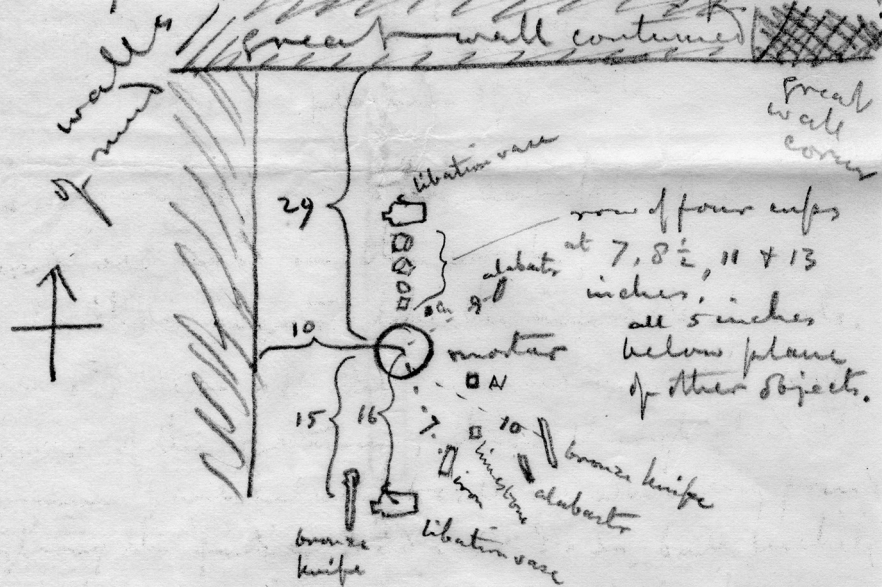 great wall continued
walls
of mud
great
wall
corner
libation vase
29
row of four cups
at 7, 8½, 11 + 13
inches,
all 5 inches
below plane
of other objects.
alabaster
Cu
10
mortar
N
15
16
7
10
bronze knife
alabaster
iron
libation vase
bronze
knife